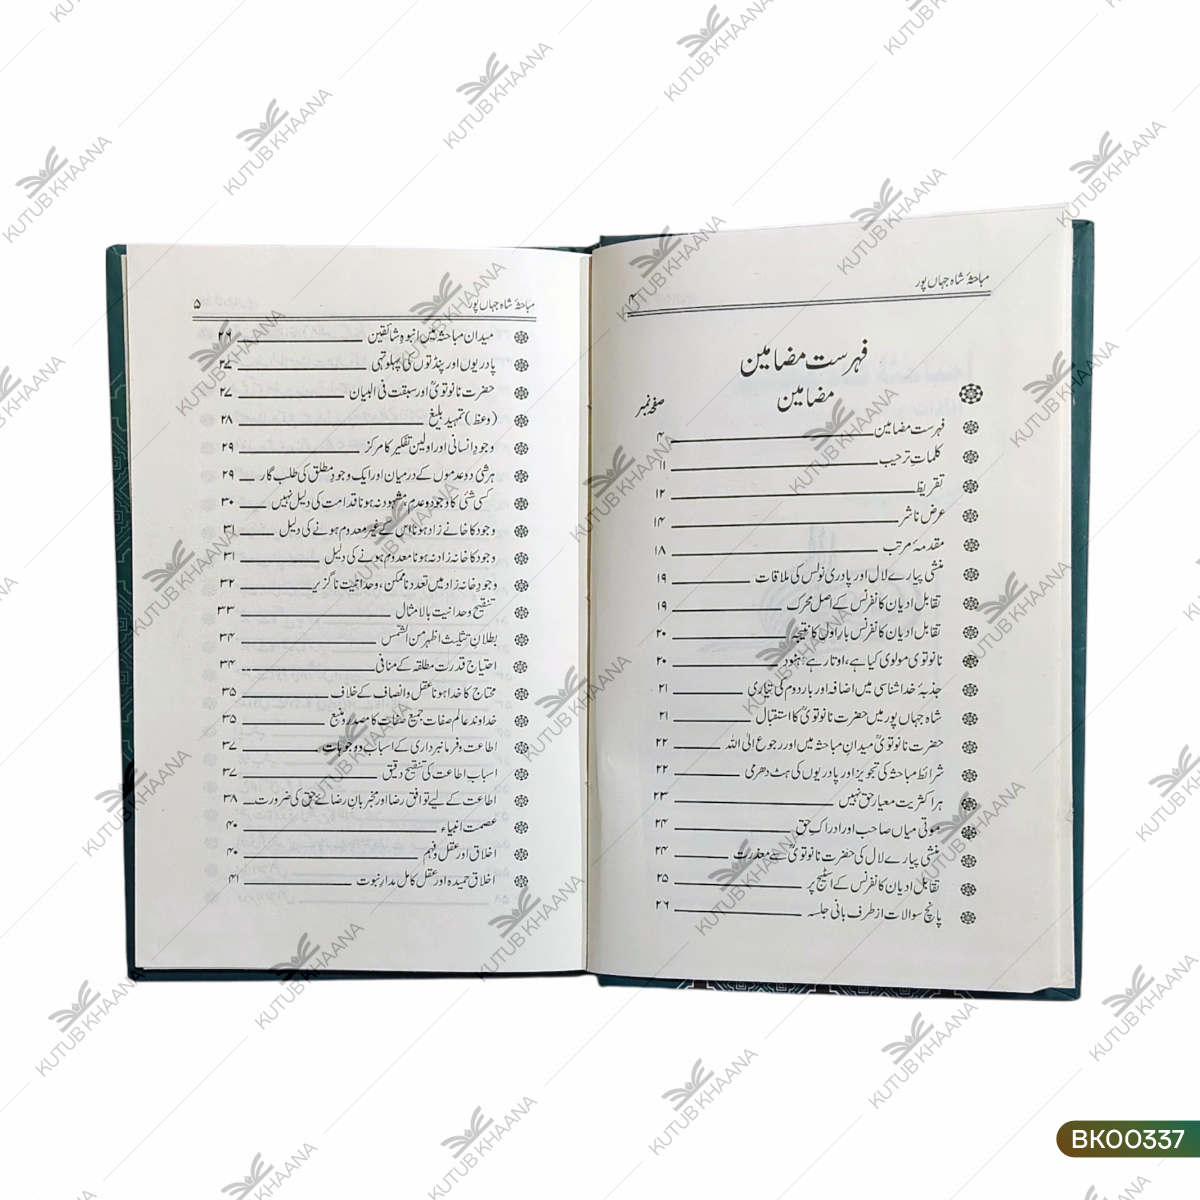 مباحثۂ شاہ جہاں پور ۴
فہرست مضامین
مضامین صفحہ نمبر
فہرست مضامین ۴
کلمات ترحیب ۱۱
تقریظ ۱۲
عرض ناشر ۱۴
مقدمۂ مرتب ۱۸
منشی پیارے لال اور پادری نولس کی ملاقات ۱۹
تقابل ادیان کانفرنس کے اصل محرک ۱۹
تقابل ادیان کانفرنس بار اول کا نتیجہ ۲۰
نانوتوی مولوی کیا ہے، اوتار ہے: ہنود ۲۰
جذبۂ خدا شناسی میں اضافہ اور بار دوم کی تیاری ۲۱
شاہ جہاں پور میں حضرت نانوتویؒ کا استقبال ۲۱
حضرت نانوتویؒ میدان مباحثہ میں اور رجوع الی اللہ ۲۲
شرائط مباحثہ کی تجویز اور پادریوں کی ہٹ دھرمی ۲۲
ہر اکثریت معیار حق نہیں ۲۳
موتی میاں صاحب اور ادراک حق ۲۴
منشی پیارے لال کی حضرت نانوتویؒ سے معذرت ۲۴
تقابل ادیان کانفرنس کے اسٹیج پر ۲۵
پانچ سوالات از طرف بانی جلسہ ۲۶
مباحثۂ شاہ جہاں پور ۵
میدان مباحثہ میں انبوہ شائقین ۲۶
پادریوں اور پنڈتوں کی پہلو تہی ۲۷
حضرت نانوتویؒ اور سبقت فی البیان ۲۷
(وعظ) تمہید بلیغ ۲۸
وجود انسانی اور اولین تفکیر کا مرکز ۲۹
ہر شئ دو عدموں کے درمیان اور ایک وجود مطلق کی طلب گار ۲۹
کسی شئ کا وجود و عدم، مشہود نہ ہونا قدامت کی دلیل نہیں ۳۰
وجود کا خانے زاد ہونا اس کے غیر معدوم ہونے کی دلیل ۳۱
وجود کا خانہ زاد نہ ہونا معدوم ہونے کی دلیل ۳۱
وجود خانہ زاد میں تعدد ناممکن، وحدانیت ناگزیر ۳۲
تنقیح وحدانیت بالامثال ۳۳
بطلان تثلیث اظہر من الشمس ۳۴
احتیاج قدرت مطلقہ کے منافی ۳۴
محتاج کا خدا ہونا عقل و انصاف کے خلاف ۳۵
خداوند عالم صفات جمیع صفات کا مصدر و منبع ۳۵
اطاعت و فرمانبرداری کے اسباب و وجوہات ۳۷
اسباب اطاعت کی تنقیح دقیق ۳۷
اطاعت کے لیے توافق رضا اور مخبران رضائے حق کی ضرورت ۳۸
عصمت انبیاء ۴۰
اخلاق اور عقل و فہم ۴۰
اخلاق حمیدہ اور عقل کامل مدار نبوت ۴۱
KUTUB KHAANA
BK00337